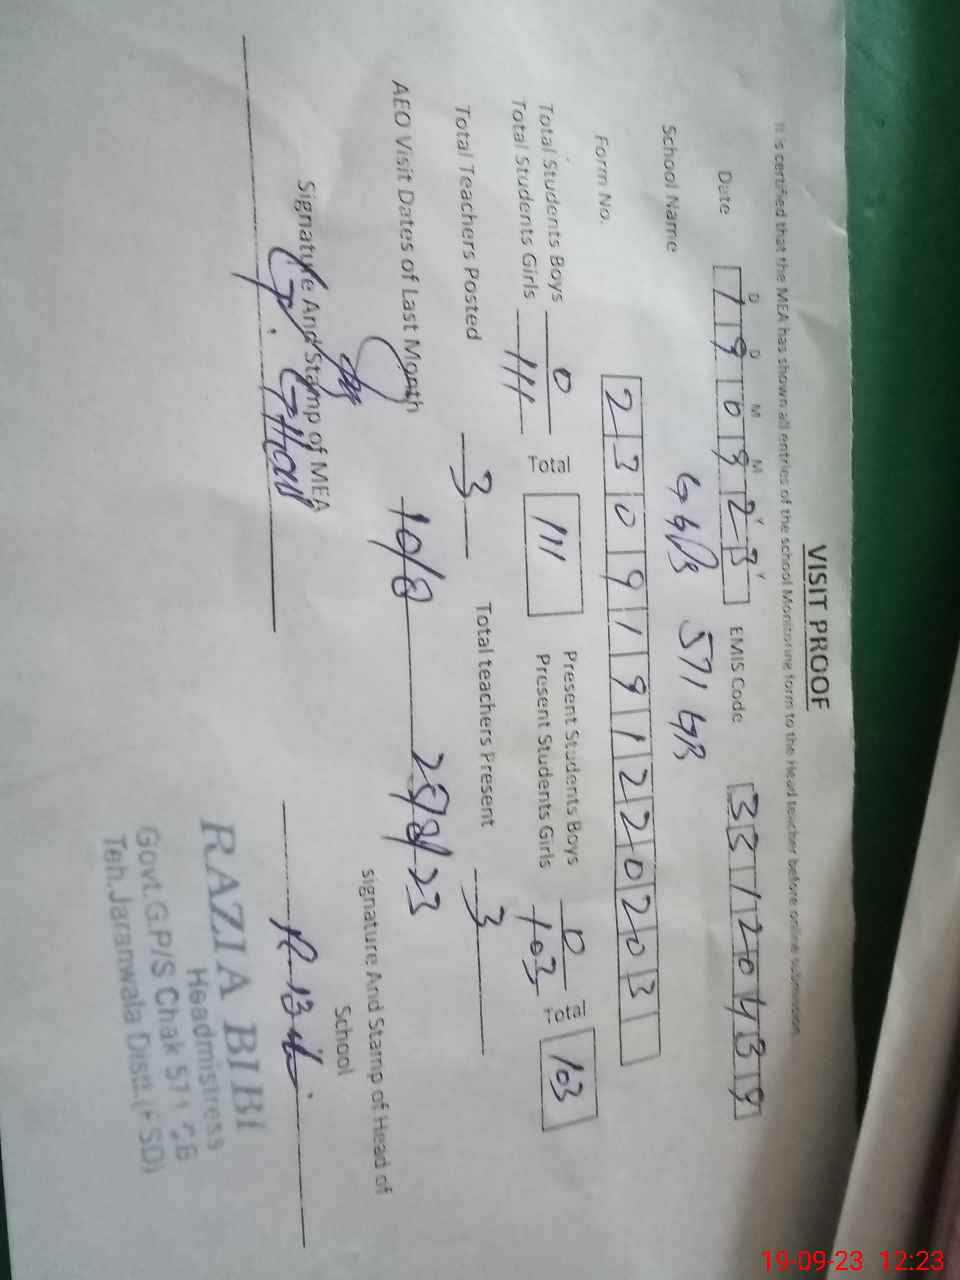 VISIT PROOF
It is certified that the MEA has shown all entries of the school Monitoring form to the Head teacher before online submission.
D D M M Y Y
Date 19 09 23 EMIS Code 33120439
School Name GGPS 571 GB
Form No. 2309191220203
Total Students Boys 0 Total 111 Present Students Boys 0 Total 103
Total Students Girls 111 Present Students Girls 103
Total Teachers Posted 3 Total teachers Present 3
AEO Visit Dates of Last Month 10/8 28/8/23
Signature And Stamp of MEA
signature And Stamp of Head of
School
R. Bibi
RAZIA BIBI
Headmistress
Govt.G.P/S Chak 571 GB
Teh.Jaranwala Distt.(FSD)
19-09-23 12:23